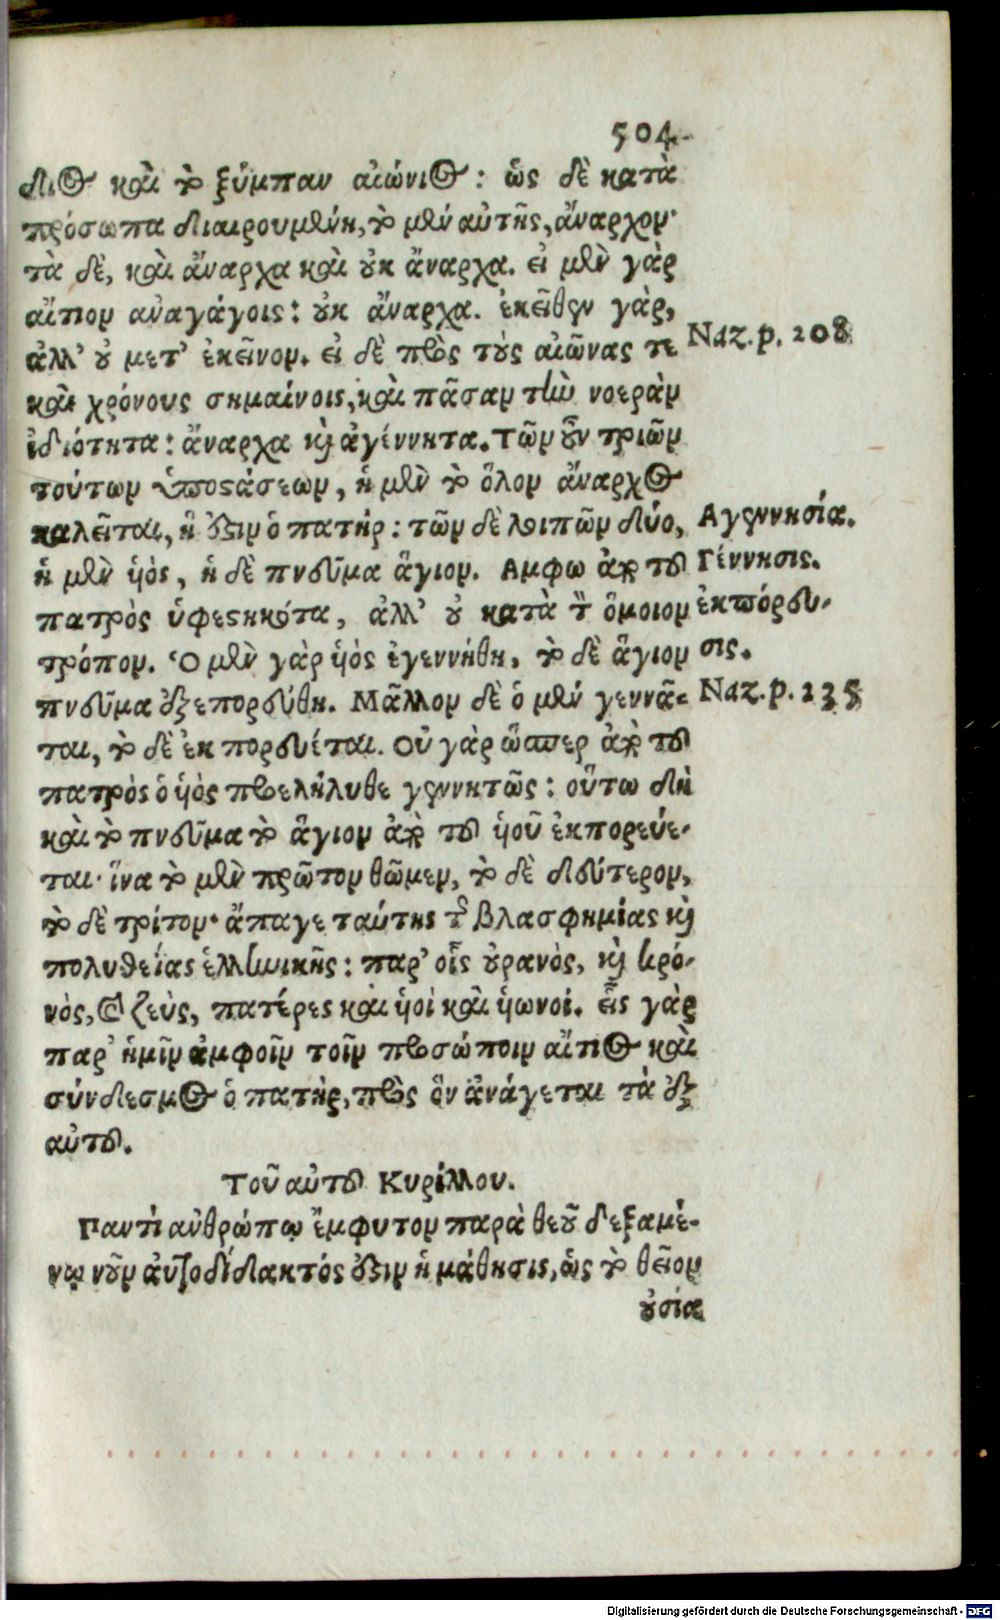 504
διος καὶ τὸ ξύμπαν αἰώνιος: ὡς δὲ κατὰ
πρόσωπα διαιρουμένη, τὸ μὲν αὐτῆς, ἄναρχον·
τὰ δὲ, καὶ ἄναρχα καὶ οὐκ ἄναρχα. εἰ μὲν γὰρ
αἴτιον ἀναγάγοις: οὐκ ἄναρχα. ἐκεῖθεν γὰρ,
ἀλλ' οὐ μετ' ἐκεῖνον. εἰ δὲ πρὸς τοὺς αἰῶνας τε
Naz. p. 208
καὶ χρόνους σημαίνοις, καὶ πᾶσαν τὴν νοερὰν
ἰδιότητα: ἄναρχα καὶ ἀγέννητα. Τῶν οὖν τριῶν
τούτων ὑποστάσεων, ἡ μὲν τὸ ὅλον ἄναρχος
καλεῖται, ἥ ἐστιν ὁ πατήρ: τῶν δὲ λοιπῶν δύο,
Αγεννησία.
ἡ μὲν ὑιός, ἡ δὲ πνεῦμα ἅγιον. Αμφω ἀπὸ τοῦ
Γέννησις.
πατρὸς ὑφεστηκότα, ἀλλ' οὐ κατὰ τὸν ὅμοιον
ἐκπόρευ-
τρόπον. Ὁ μὲν γὰρ ὑιὸς ἐγεννήθη, τὸ δὲ ἅγιον
σις.
πνεῦμα ἐξεπορεύθη. Μᾶλλον δὲ ὁ μὲν γεννᾶ-
Naz. p. 235
ται, τὸ δὲ ἐκπορεύεται. Οὐ γὰρ ὥσπερ ἀπὸ τοῦ
πατρὸς ὁ ὑιὸς προελήλυθε γεννητῶς: οὕτω δὴ
καὶ τὸ πνεῦμα τὸ ἅγιον ἀπὸ τοῦ ὑιοῦ ἐκπορεύε-
ται· ἵνα τὸ μὲν πρῶτον θῶμεν, τὸ δὲ δεύτερον,
τὸ δὲ τρίτον· ἄπαγε ταύτης τῆς βλασφημίας καὶ
πολυθείας ἑλληνικῆς: παρ' οἷς οὐρανὸς, καὶ κρό-
νὸς, καὶ ζεὺς, πατέρες καὶ ὑιοὶ καὶ ὑιωνοί. εἷς γὰρ
παρ' ἡμῖν ἀμφοῖν τοῖν προσώποιν αἴτιος καὶ
σύνδεσμος ὁ πατὴρ, πρὸς ὃν ἀνάγεται τὰ ἐξ
αὐτοῦ.
Τοῦ αὐτοῦ Κυρίλλου.
Παντὶ ἀνθρώπῳ ἔμφυτον παρὰ θεοῦ δεξαμέ-
νῳ νοῦν αὐτοδίδακτός ἐστιν ἡ μάθησις, ὡς τὸ θεῖον
οὐσία
Digitalisierung gefördert durch die Deutsche Forschungsgemeinschaft - DFG